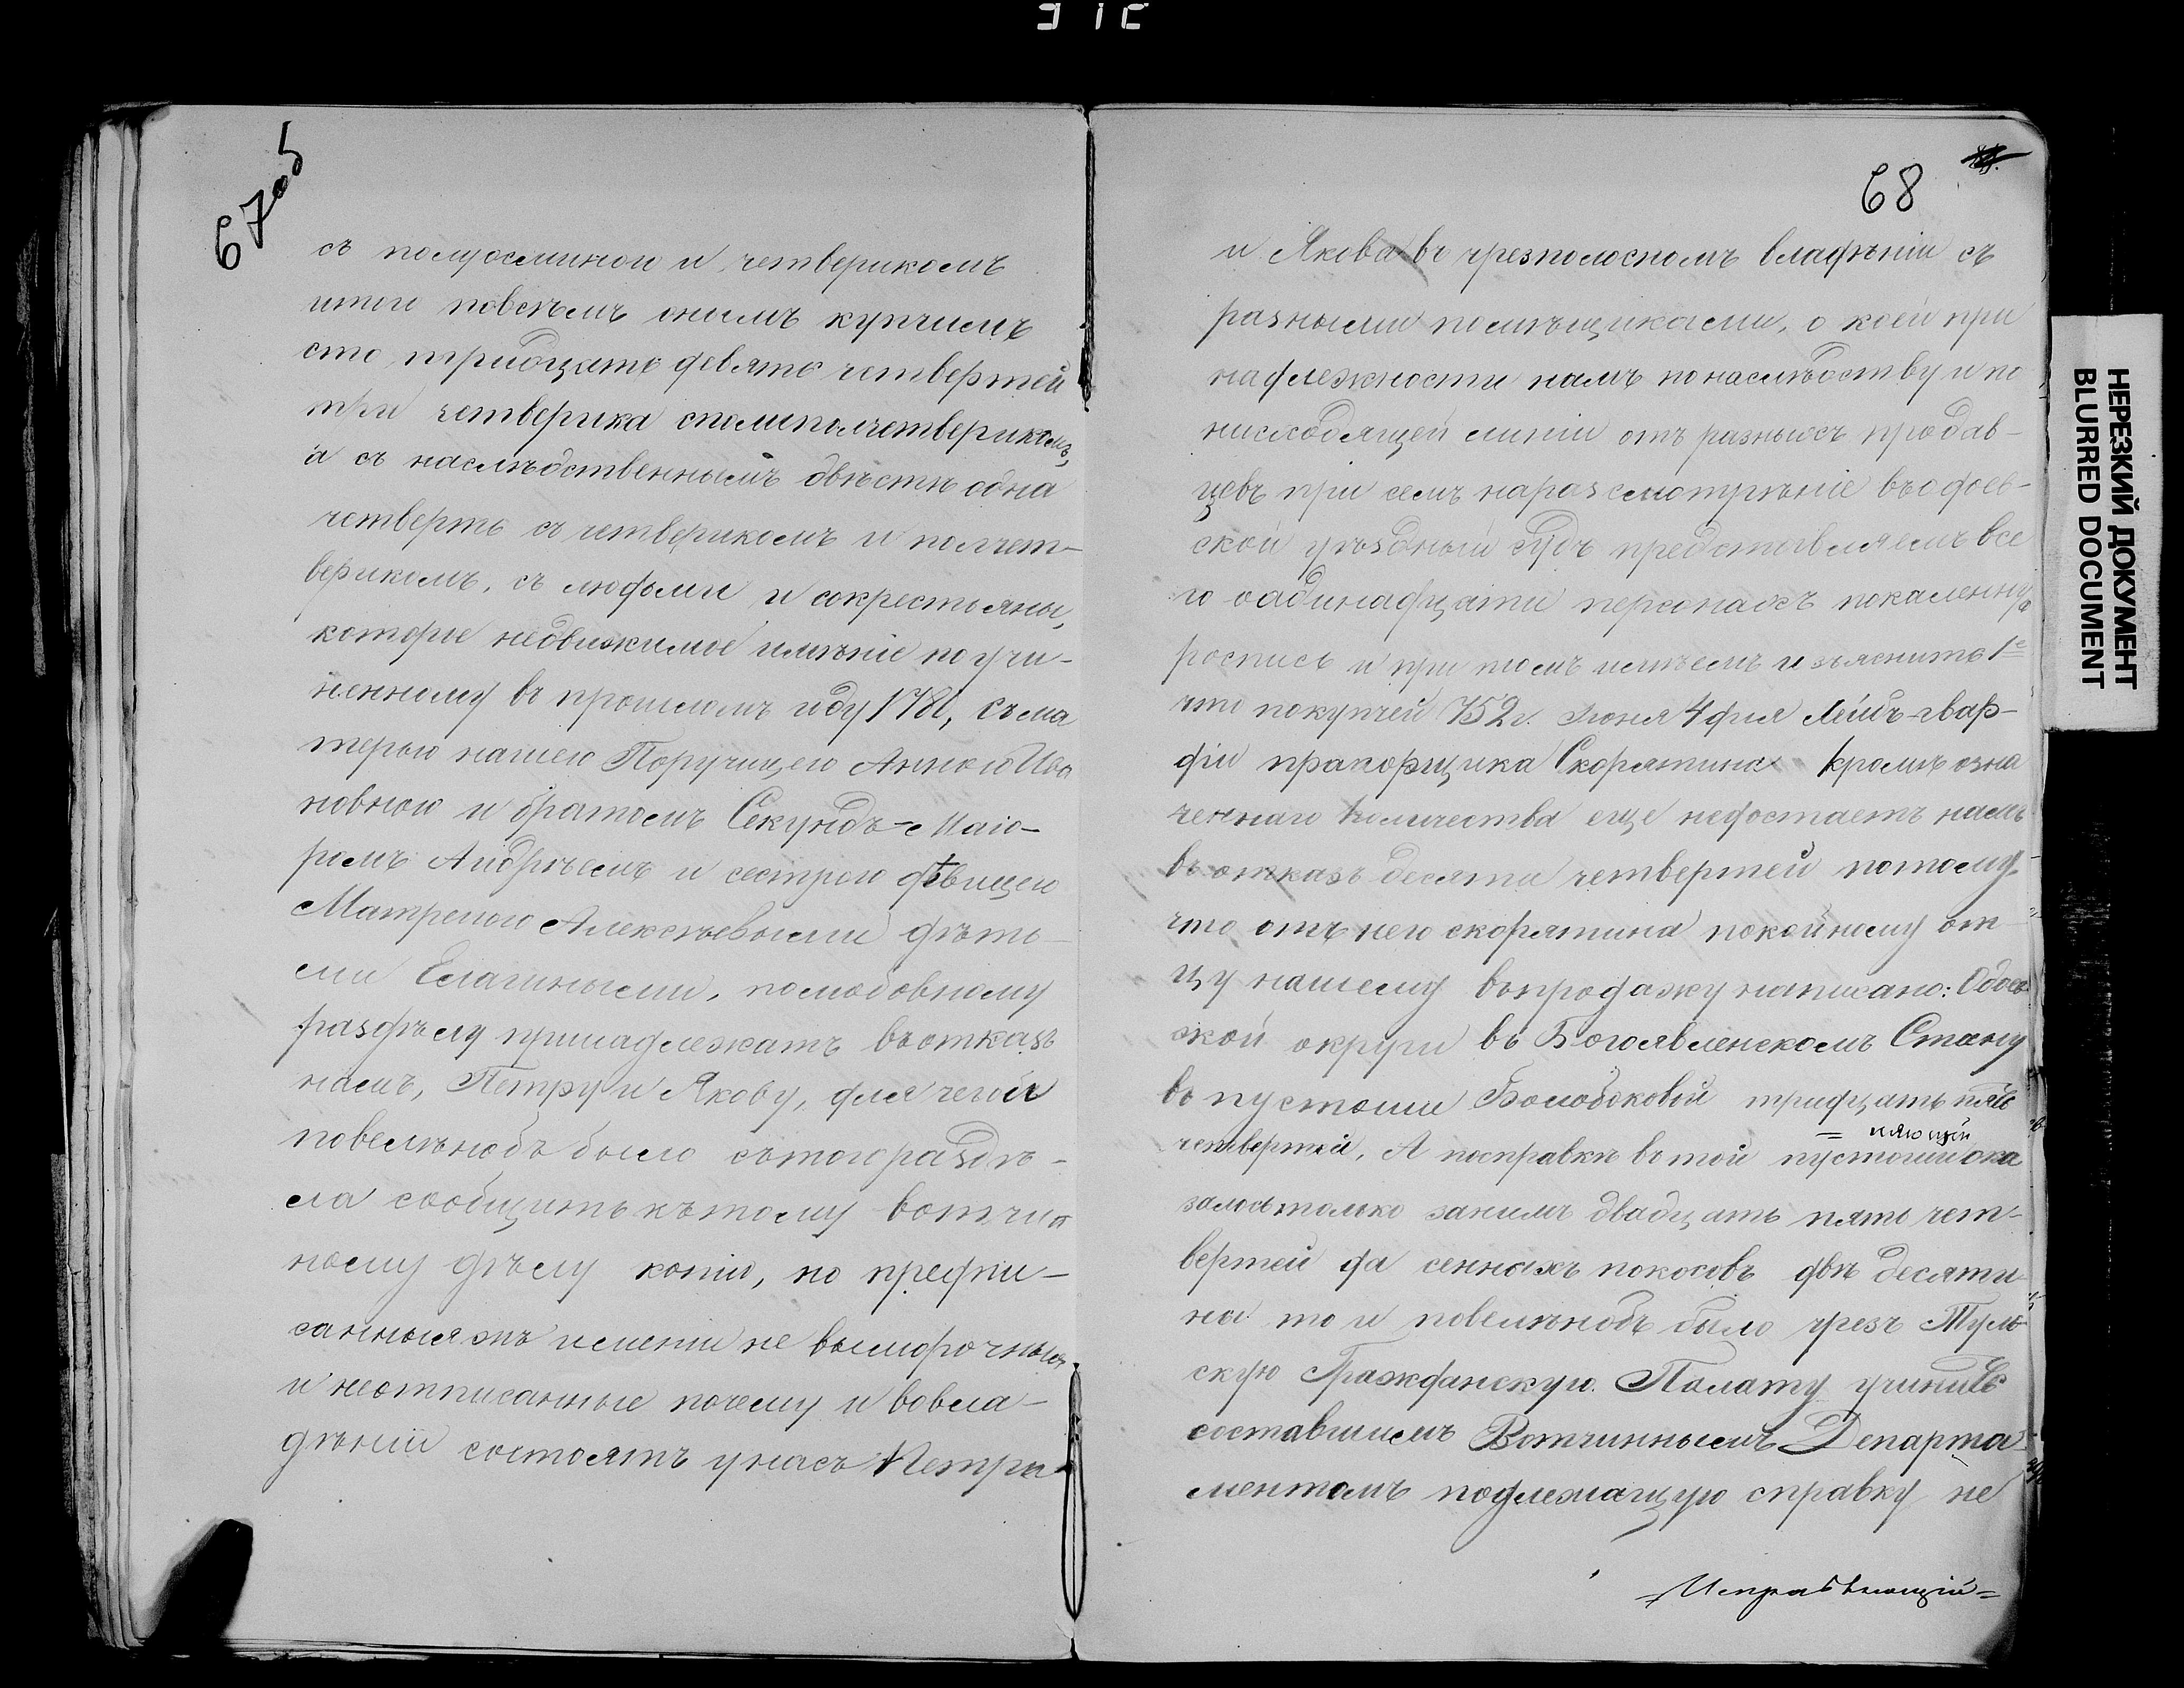 67 об
съ полуосминою и четверикомъ
итого повсѣмъ онымъ купчимъ
сто тридцать девять четвертей
три четверика сполуполчетверикомъ,
а съ наслѣдственнымъ двѣсти одна
четверть съ четверикомъ и полчет-
верикомъ, съ людьми и сокрестьяны,
которые недвижимое имѣніе по учи-
ненному въ прошломъ году 1781, съ ма
терью нашею Поручицею Анною Ива
новною и братомъ Секундъ-Маіо-
ромъ Андрѣемъ и сестрою дѣвицею
Матреною Алексѣевыми дѣть-
ми Елагиными, полюбовному
раздѣлу принадлежатъ въотказъ
намъ, Петру и Якову, для чего и
повелѣнобъ было стого раздѣ-
ла сообщить къ тому вотчин
ному дѣлу копію, но предпи-
санныя жъ имении не выморочныя
и неотписанные почему и вовла-
дѣніи состоятъ унасъ Петра
68
и Якова въ чрезполосномъ владѣніи съ
разными помѣщиками, о коей при
надлежности намъ понаслѣдству и по
нисходящей линіи отъ разныхъ продав-
цевъ при семъ наразсмотрѣніе въодоев-
ской уѣздный судъ представляемъ все
го оадинадцати персонахъ поколенную
роспись и при томъ имѣемъ изъяснить 1е
что покупчей 752 г. Іюня 4 дня Лейбъ-гвар-
діи прапорщика Скорятина кромѣ озна
ченнаго количества еще недостаетъ намъ
въотказъ десяти четвертей потому
что отъ него скорятина покойному от
цу нашему въпродажу написано: Одоев
ской округи въ Богоявленскомъ Стану
въ пустоши тридцать пять
четвертей, А посправкѣ въ той пустоши ока
залось только занимъ двадцать пять чет-
вертей да сенныхъ покосовъ двѣ десяти-
ны то и повелѣнобъ было чрезъ Туль
скую Гражданскую Палату учинить
составшимъ Вотчиннымъ Департа
ментомъ подлежащую справку не
НЕРЕЗКИЙ ДОКУМЕНТ
BLURRED DOCUMENT